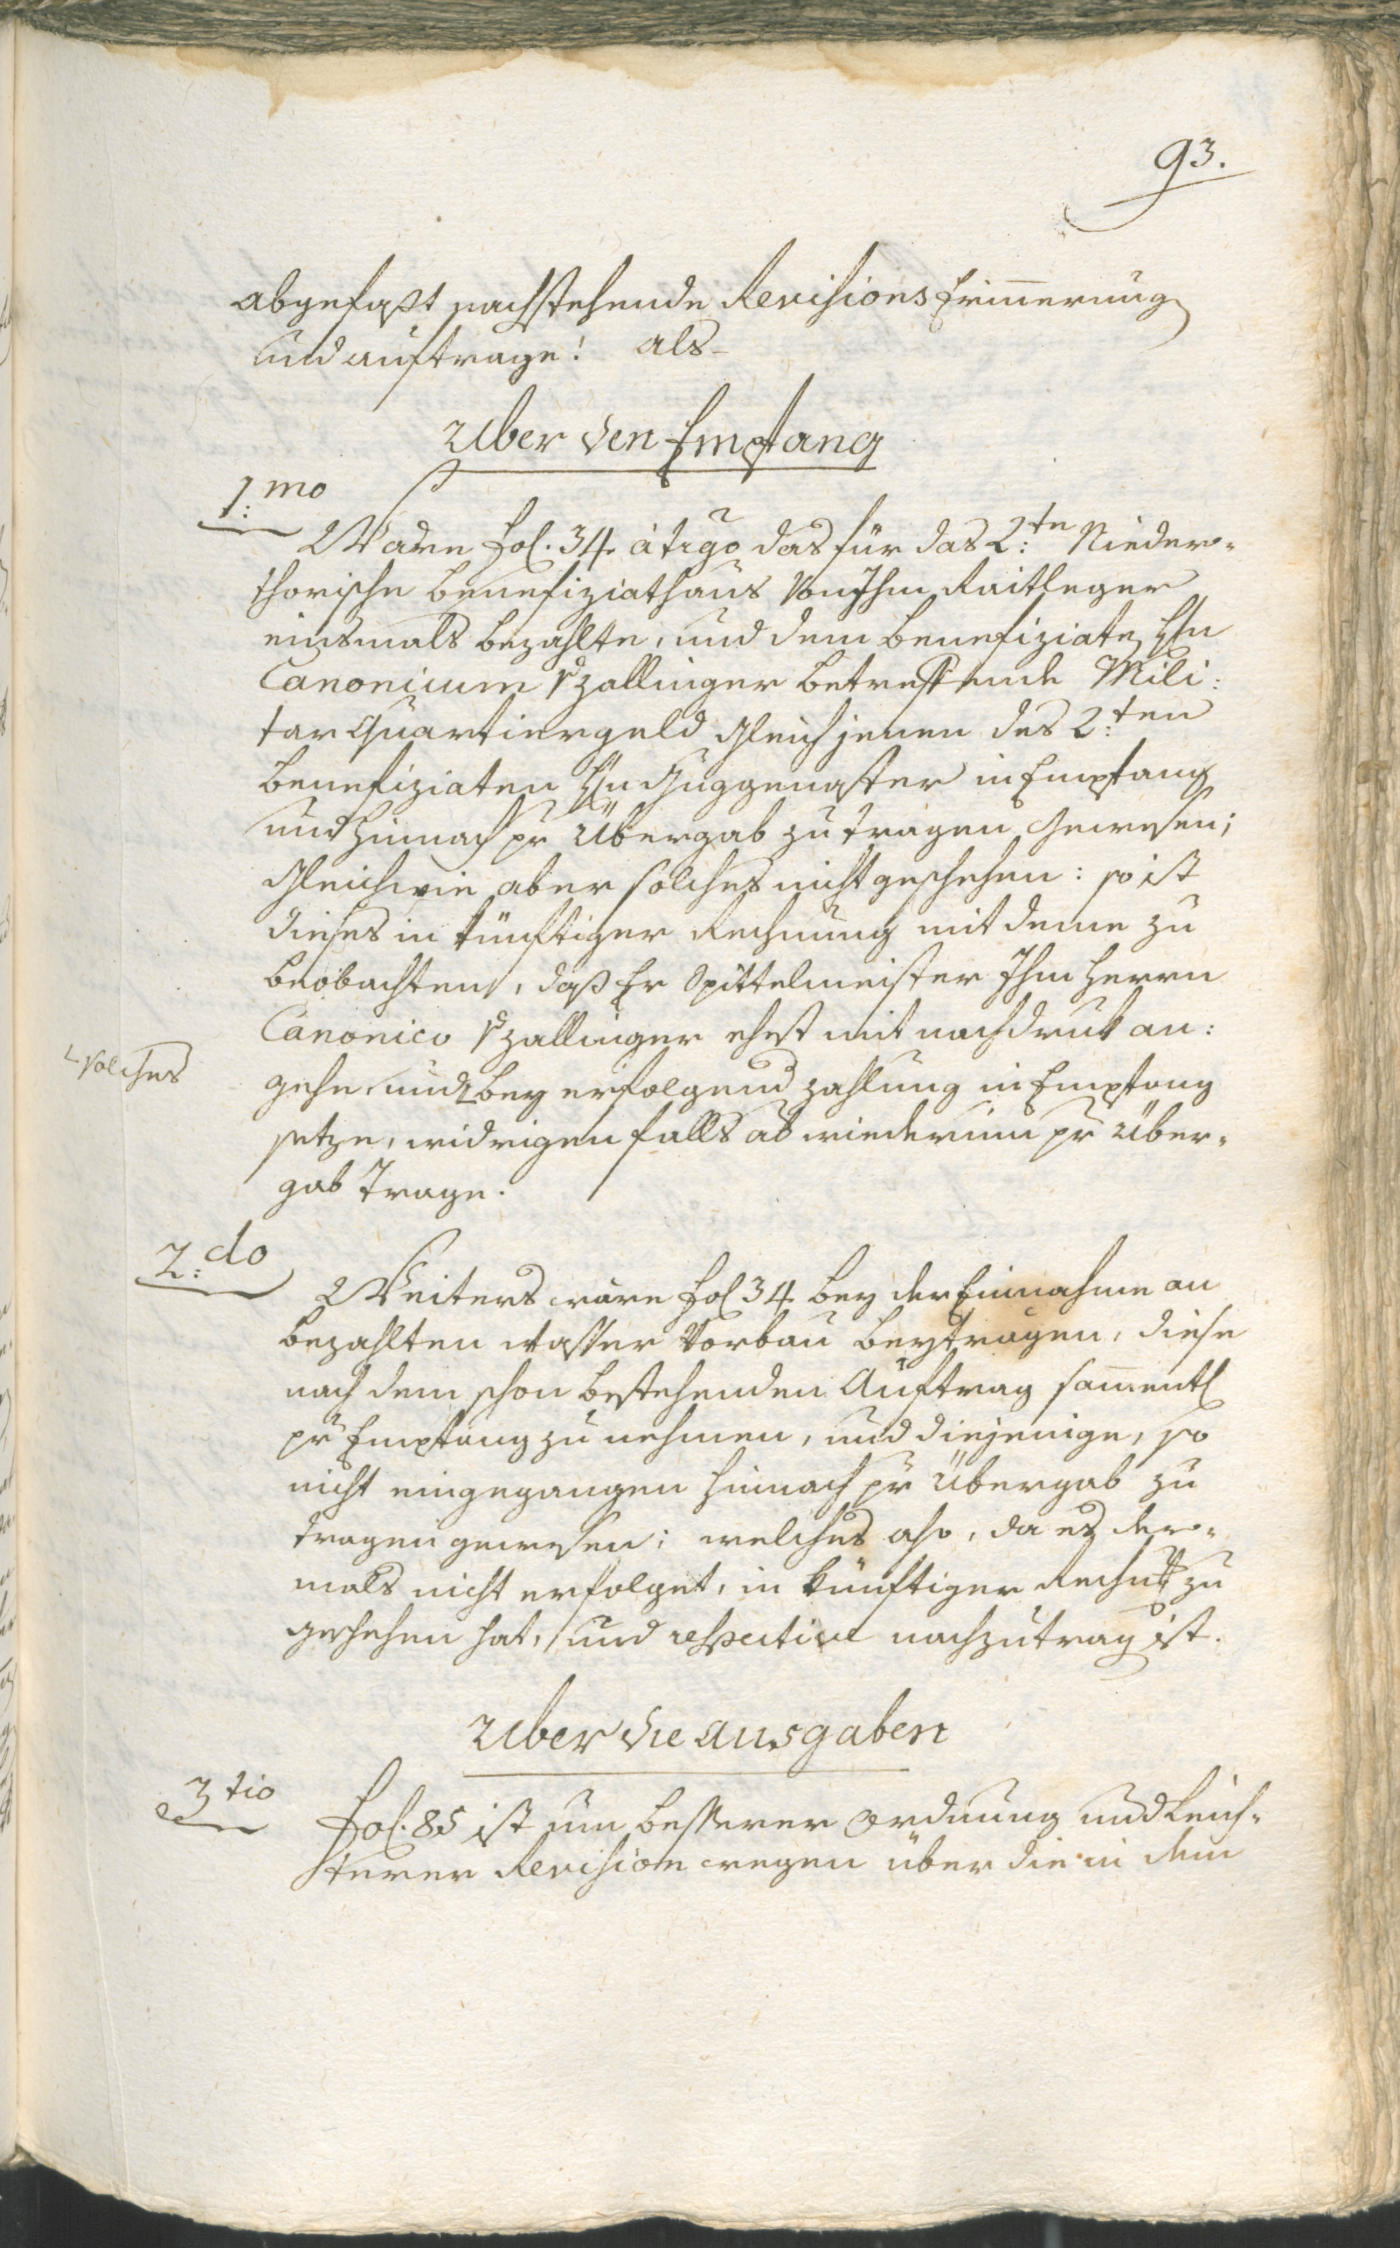 93.
abgefaßt nachstehende Revisions Erinnerung
und auftrage! als
Uber den Empfang
1:mo
Ware Fol. 34. à tergo das für das 2:te Nieder-
thorische Benefiziathaus von Ihm Raitleger
einsmals bezahlte, und dem Benefiziaten Hn
Canonicum v Zallinger betreffende Mili:
tar Quartiergeld gleich jenen des 2:ten
Benefiziaten Hn Guggengster in Empfang
und hinnach pr Übergab zu tragen gewesen;
Gleichwie aber solches nicht geschehen: so ist
dieses in künftiger Rechnung mit deme zu
beobachten, daß Er Spittelmeister Ihm Herrn
Canonico v Zallinger ehest mit nachdruk an:
solches
gehe und bey erfolgend zahlung in Empfang
setze, widrigenfalls ab wiederum pr Über-
gab Trage.
2:do
Weiters wäre Fol 34 bey der Einnahme an
bezahlten Wasser Vorbau Beyträgen, diese
nach dem schon bestehenden Auftrag samentl
pr Empfang zu nehmen, und diejenige, so
nicht eingegangen hinnach pr Übergab zu
tragen gewesen; welches also, da es der-
mals nicht erfolget, in künftiger Rechnung zu
geschehen hat, und respective nachzutragen ist.
Uber die Ausgaben
3tio
Fol. 85 ist um besserer Ordnung und Leich-
terer Revision wegen über die in dem